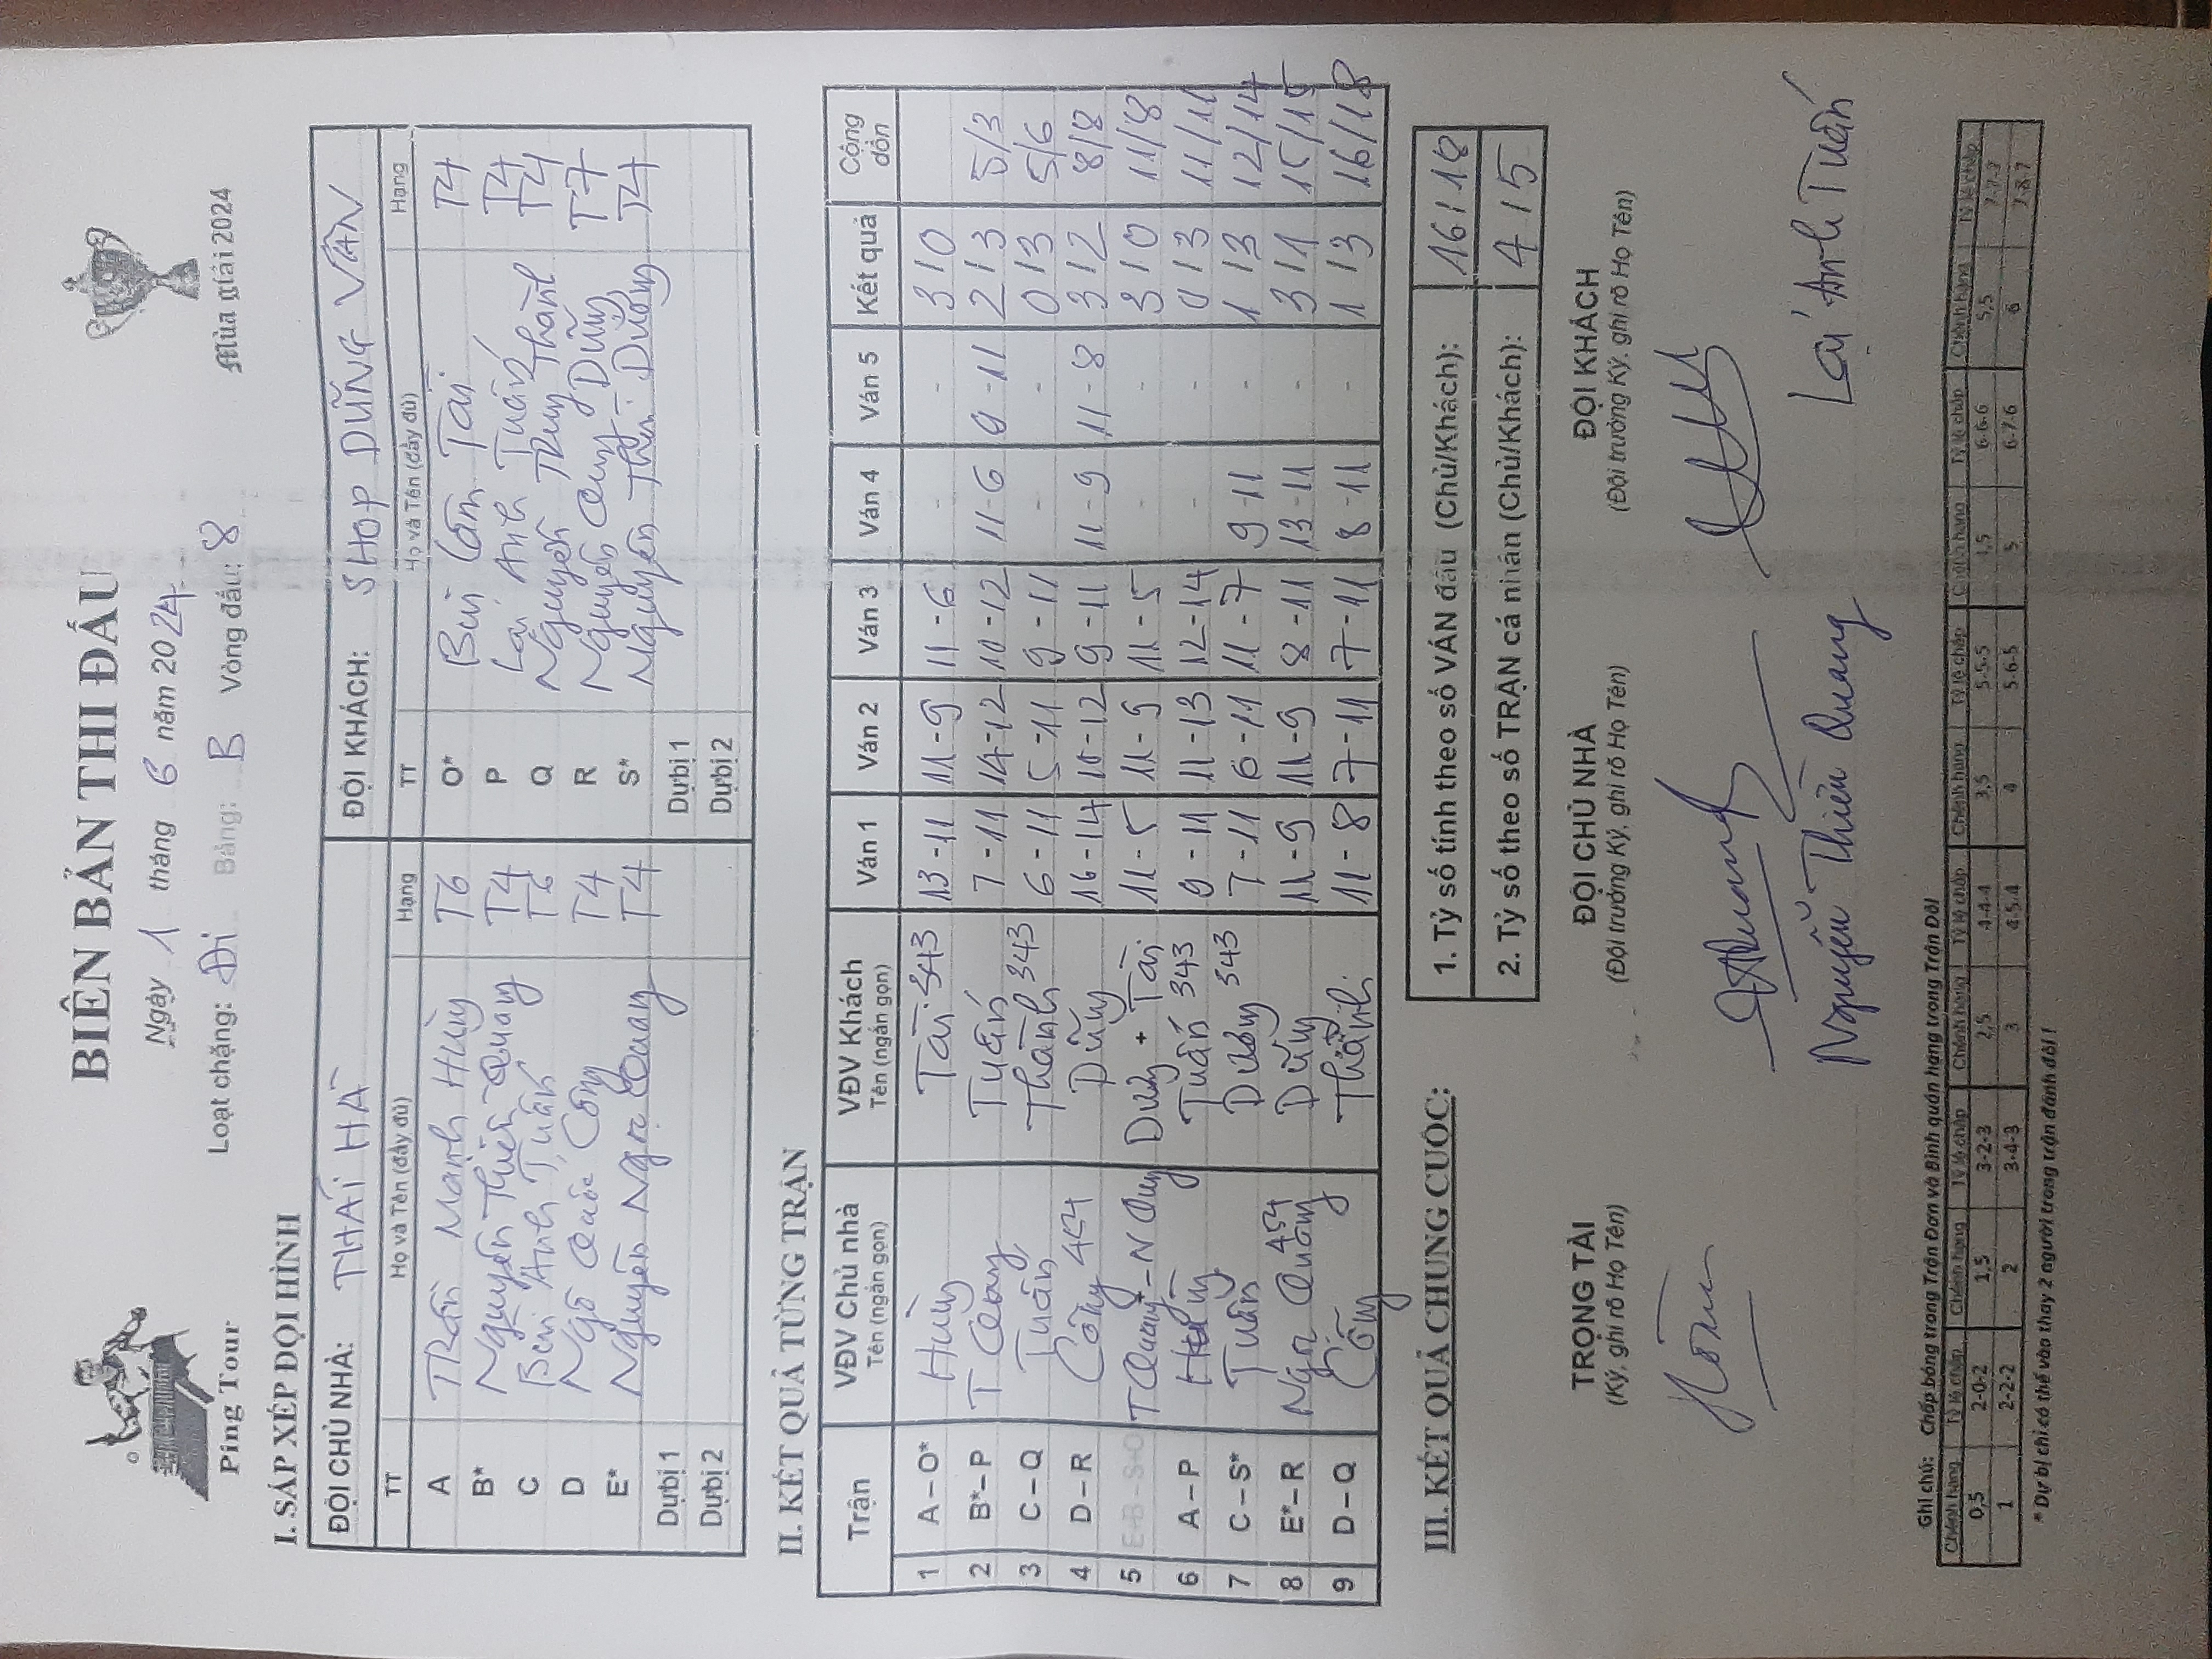 BIÊN BẢN THI ĐẤU
Ping Tour
Ngày 1 tháng 6 năm 2024
Mùa giải 2024
Loạt chặng: Đi Bảng: B Vòng đấu: 8
I. SẮP XẾP ĐỘI HÌNH
ĐỘI CHỦ NHÀ: THÁI HÀ ĐỘI KHÁCH: SHOP DŨNG VÂN
TT Họ và Tên (đầy đủ) Hạng TT Họ và Tên (đầy đủ) Hạng
A Trần Mạnh Hùng T6 O* Bùi Tài T4
B* Nguyễn Thiện Quang T4 P Lại Anh Tuấn T4
C Bùi Anh Tuấn T6 Q Nguyễn Thuy Thành T4
D Ngô Quốc Công T4 R Nguyễn Quy Dũng T7
E* Nguyễn Ngọc Quang T4 S* Nguyễn Dương T4
Dự bị 1 Dự bị 1
Dự bị 2 Dự bị 2
II. KẾT QUẢ TỪNG TRẬN
Trận VĐV Chủ nhà Tên (ngắn gọn) VĐV Khách Tên (ngắn gọn) Ván 1 Ván 2 Ván 3 Ván 4 Ván 5 Kết quả Cộng dồn
1 A – O* Hùng Tài 343 13-11 11-9 11-6 - - 3 / 0
2 B* – P T Quang Tuấn 7-11 14-12 10-12 11-6 9-11 2 / 3 5/3
3 C – Q Tuấn Thành 343 6-11 5-11 9-11 - - 0 / 3 5/6
4 D – R Công 454 Dũng 16-14 10-12 9-11 11-9 11-8 3 / 2 8/8
5 E+B – S+O T Quang - N Quang + Tài 11-5 11-9 11-5 - - 3 / 0 11/8
6 A – P Hùng Tuấn 343 9-11 11-13 12-14 - - 0 / 3 11/11
7 C – S* Tuấn Dương 343 7-11 6-11 11-7 9-11 - 1 / 3 12/14
8 E* – R Ngọc Quang 454 Dũng 11-9 11-9 8-11 13-11 - 3 / 1 15/15
9 D – Q Công Thành 11-8 7-11 7-11 8-11 - 1 / 3 16/18
III. KẾT QUẢ CHUNG CUỘC:
1. Tỷ số tính theo số VÁN đấu (Chủ/Khách): 16/18
2. Tỷ số theo số TRẬN cá nhân (Chủ/Khách): 4/5
TRỌNG TÀI ĐỘI CHỦ NHÀ ĐỘI KHÁCH
(Ký, ghi rõ Họ Tên) (Đội trưởng Ký, ghi rõ Họ Tên) (Đội trưởng Ký, ghi rõ Họ Tên)
Nguyễn Thiện Quang Lại Anh Tuấn
Ghi chú: Chấp bóng trong Trận Đơn và Bình quân hạng trong Trận Đôi
Chênh hạng Tỷ lệ chấp Chênh hạng Tỷ lệ chấp Chênh hạng Tỷ lệ chấp Chênh hạng Tỷ lệ chấp Chênh hạng Tỷ lệ chấp Chênh hạng Tỷ lệ chấp
0,5 2-0-2 1,5 3-2-3 2,5 4-4-4 3,5 5-5-5 4,5 6-6-6 5,5 7-7-7
1 2-2-2 2 3-4-3 3 4-5-4 4 5-6-5 5 6-7-6 6 7-8-7
* Dự bị chỉ có thể vào thay 2 người trong trận đánh đôi !